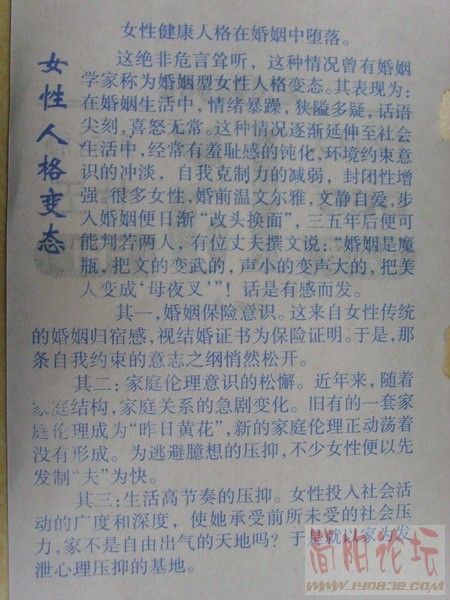 女性人格变态
女性健康人格在婚姻中堕落。
这绝非危言耸听，这种情况曾有婚姻
学家称为婚姻型女性人格变态。其表现为：
在婚姻生活中，情绪暴躁，狭隘多疑，话语
尖刻，喜怒无常。这种情况逐渐延伸至社会
生活中，经常有羞耻感的钝化，环境约束意
识的冲淡，自我克制力的减弱，封闭性增
强。很多女性，婚前温文尔雅，文静自爱，步
入婚姻便日渐“改头换面”，三五年后便可
能判若两人，有位丈夫撰文说：“婚姻是魔
瓶，把文的变武的，声小的变声大的，把美
人变成‘母夜叉’”！话是有感而发。
其一，婚姻保险意识。这来自女性传统
的婚姻归宿感，视结婚证书为保险证明。于是，那
条自我约束的意志之纲悄然松开。
其二：家庭伦理意识的松懈。近年来，随着
家庭结构，家庭关系的急剧变化。旧有的一套家
庭伦理成为“昨日黄花”，新的家庭伦理正动荡着
没有形成。为逃避臆想的压抑，不少女性便以先
发制“夫”为快。
其三：生活高节奏的压抑。女性投入社会活
动的广度和深度，使她承受前所未受的社会压
力，家不是自由出气的天地吗？于是就以家为发
泄心理压抑的基地。
简阳论坛
www.jy0832.com